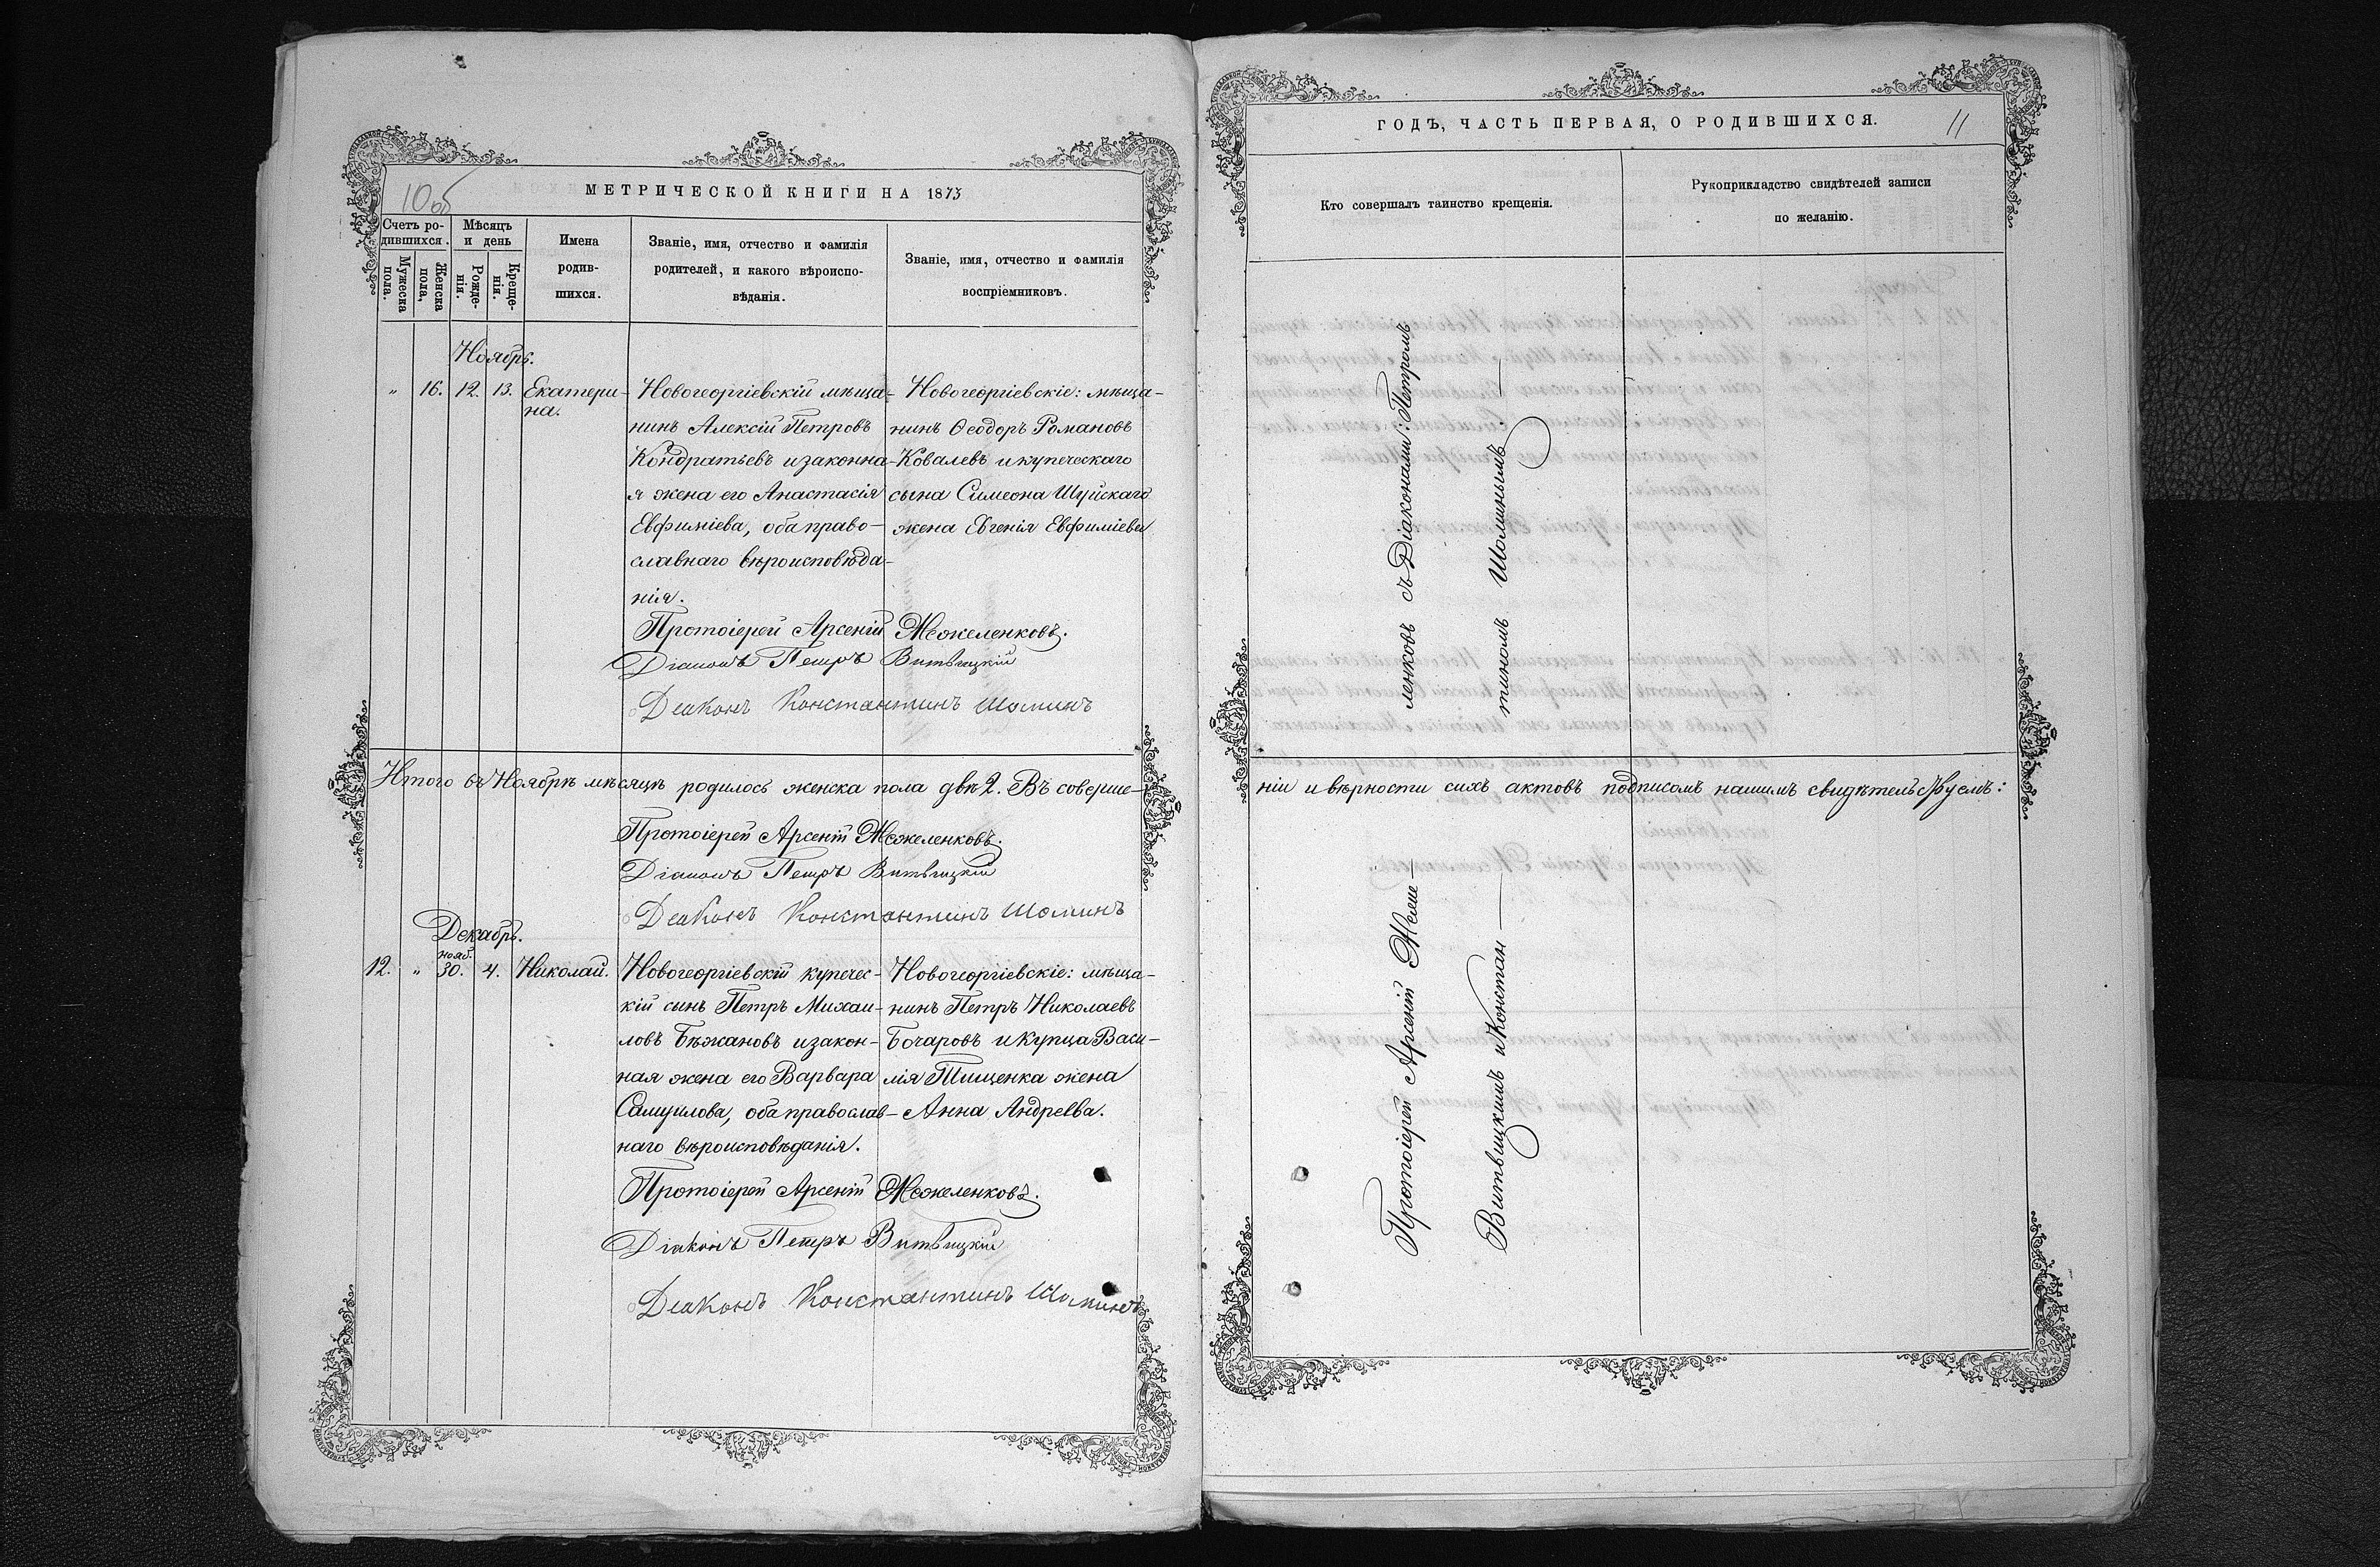 МЕТРИЧЕСКОЙ КНИГИ НА 1873
10об
Счетъ ро-
дившихся.
Мужеска
пола.
Женска
пола,
Мѣсяцъ
и день
Рожде-
нія.
Креще-
нія.
Имена
родив-
шихся.
Званіе, имя, отчество и фамилія
родителей, и какого вѣроиспо-
вѣданія.
Званіе, имя, отчество и фамилія
воспріемниковъ.
Ноябрь.
" 16. 12. 13. Екатери-
на.
Новогеоргіевскій мѣща-
нинъ Алексій Петровъ
Кондратьевъ и законна-
я жена его Анастасія
Евфиміева, оба право-
славнаго вѣроисповѣда-
нія.
Новогеоргіевскіе: мѣща-
нинъ Ѳеодоръ Романовъ
Ковалевъ и купеческаго
сына Симеона Шуйскаго
жена Евгенія Евфиміева
Протоіерей Арсеній Межеленковъ.
Діаконъ Петръ Витвицкій
Діаконъ Константинъ Шоминъ
Итого въ Ноябрѣ мѣсяцѣ родилось женска пола двѣ 2. Въ соверше-
Протоіерей Арсеній Межеленковъ.
Діаконъ Петръ Витвицкій
Діаконъ Константинъ Шоминъ
Декабрь.
нояб.
12. " 30. 4. Николай.
Новогеоргіевскій купечес-
кій сынъ Петръ Михаи-
ловъ Бѣжановъ и закон-
ная жена его Варвара
Самуилова, оба православ-
наго вѣроисповѣданія.
Новогеоргіевскіе: мѣща-
нинъ Петръ Николаевъ
Бочаровъ и купца Васи-
лія Тищенка жена
Анна Андреева.
Протоіерей Арсеній Межеленковъ.
Діаконъ Петръ Витвицкій
Діаконъ Константинъ Шоминъ
ГОДЪ, ЧАСТЬ ПЕРВАЯ, О РОДИВШИХСЯ.
11
Кто совершалъ таинство крещенія.
Рукоприкладство свидѣтелей записи
по желанію.
ленковъ съ Діаконами: Петромъ
тиномъ Шоминымъ.
ніи и вѣрности сихъ актовъ подписомъ нашимъ свидѣтельствуемъ:
Протоіерей Арсеній Меже-
Витвицкимъ и Констан-